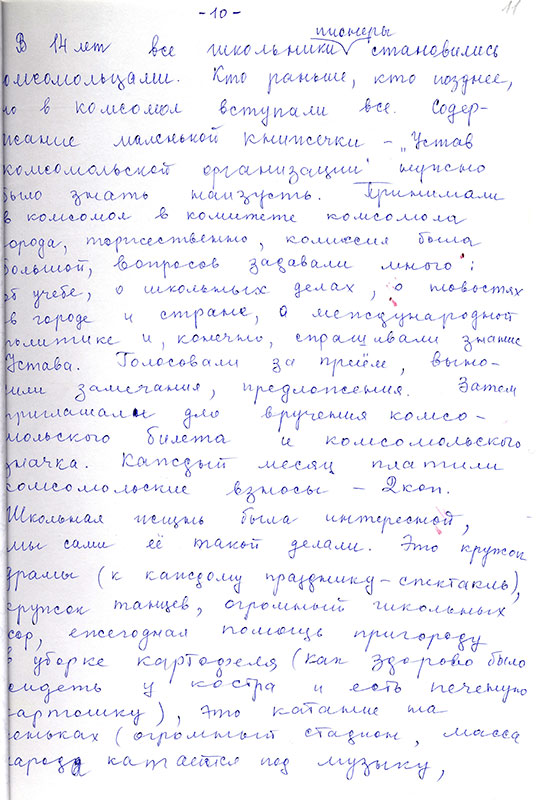 -10-
11
пионеры
В 14 лет все школьники становились
комсомольцами. Кто раньше, кто позднее,
но в комсомол вступали все. Содер-
жание маленькой книжечки - „Устав
комсомольской организации" нужно
было знать наизусть. Принимали
в комсомол в комитете комсомола
города, торжественно, комиссия была
большой, вопросов задавали много:
об учебе, о школьных делах, о новостях
в городе и стране, о международной
политике и, конечно, спрашивали знание
Устава. Голосовали за приём, выно-
сили замечания, предложения. Затем
приглашали для вручения комсо-
мольского билета и комсомольского
значка. Каждый месяц платили
комсомольские взносы - 2 коп.
Школьная жизнь была интересной,
мы сами её такой делали. Это кружок
драмы (к каждому празднику-спектакль),
кружок танцев, огромный школьных
хор, ежегодная помощь пригороду
в уборке картофеля (как здорово было
сидеть у костра и есть печеную
картошку), это катание на
коньках (огромный стадион, масса
народа катается под музыку,